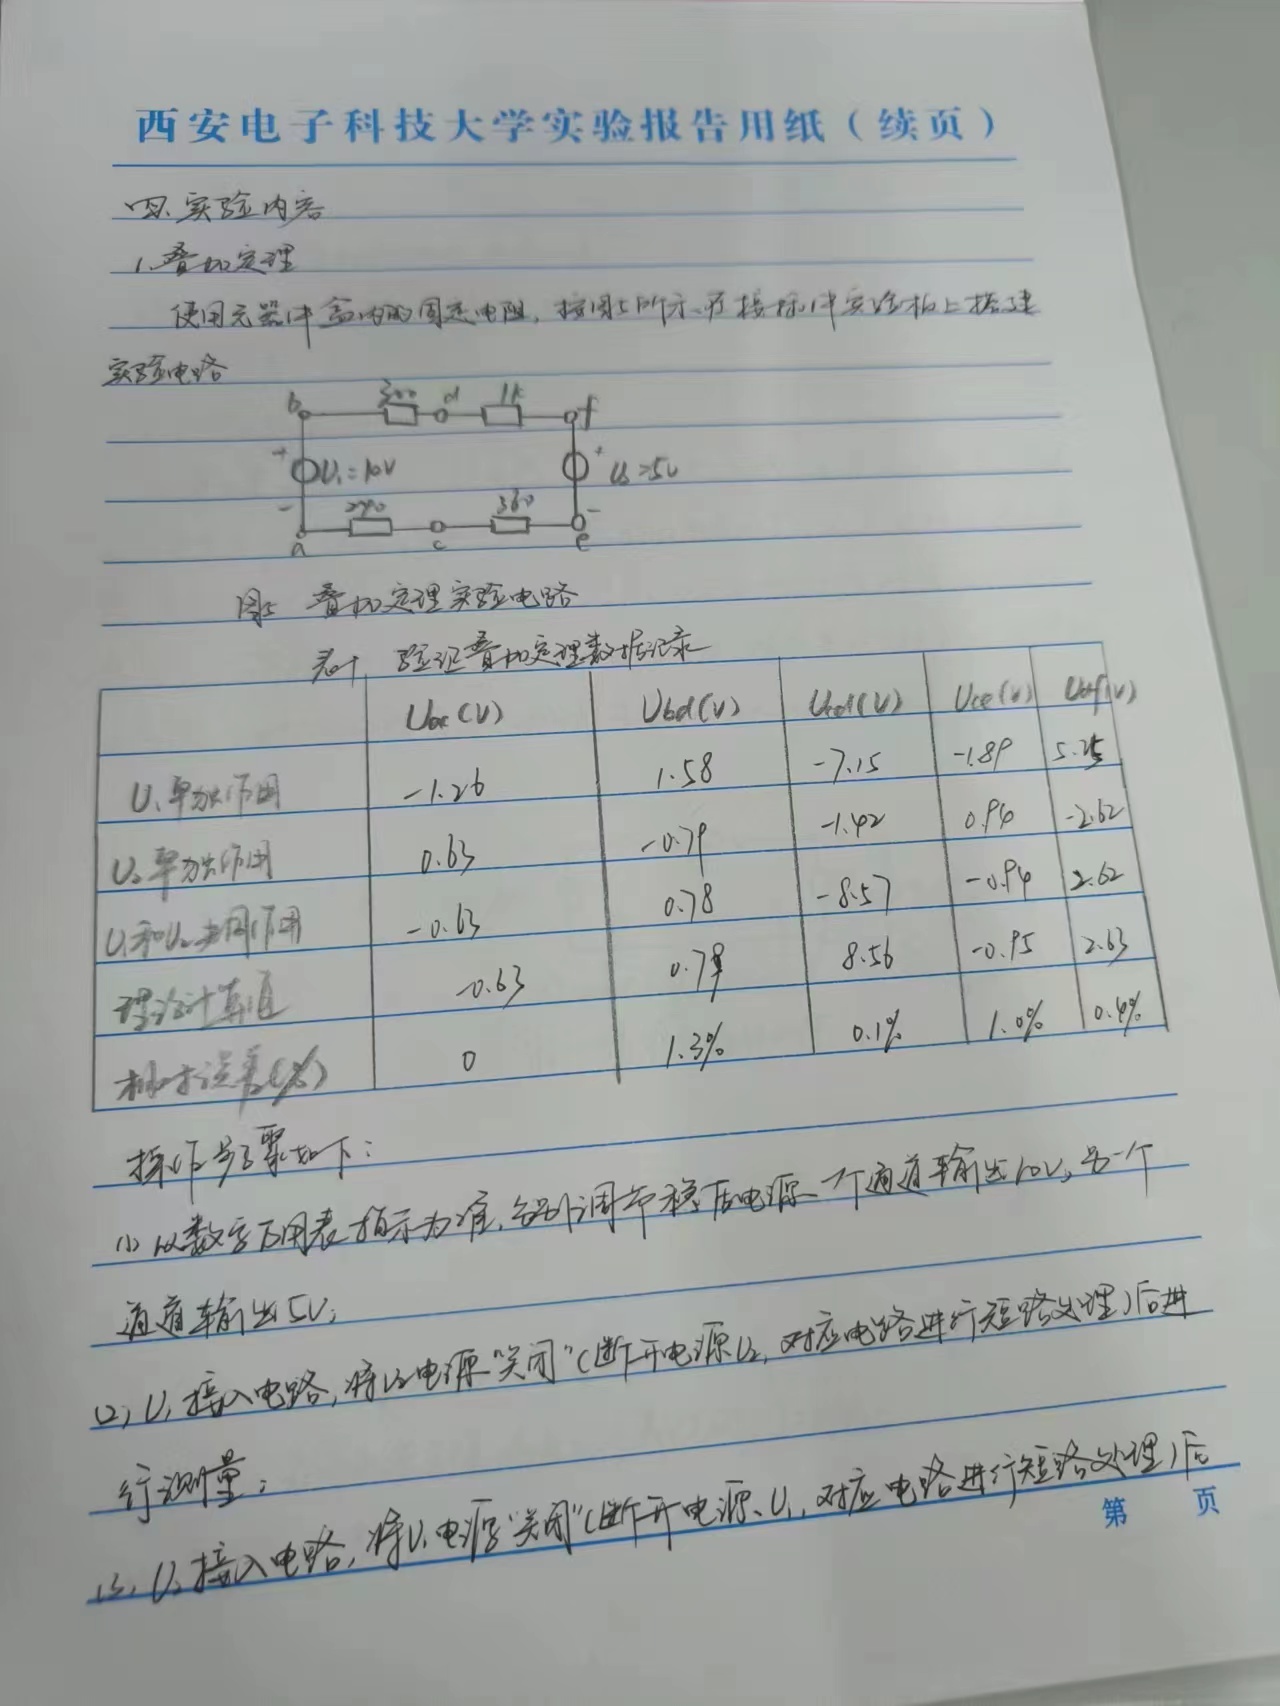 西安电子科技大学实验报告用纸（续页）
四、实验内容
1.叠加定理
使用元器件盒内的固定电阻，按图5所示，在接标件实验板上搭建
实验电路
b 300 d 1k f
+ U₁=10V + U₂=5V
- 240 360 -
a c e
图5 叠加定理实验电路
表1 验证叠加定理数据记录
Uac(V) Ubd(V) Ucd(V) Uce(V) Udf(V)
U₁单独作用 -1.26 1.58 -7.15 -1.89 5.25
U₂单独作用 0.63 -0.79 -1.42 0.94 -2.62
U₁和U₂共同作用 -0.63 0.78 -8.57 -0.94 2.62
理论计算值 -0.63 0.79 8.56 -0.95 2.63
相对误差(%) 0 1.3% 0.1% 1.0% 0.4%
操作步骤如下：
(1) 以数字万用表指示为准，分别调节稳压电源一个通道输出10V，另一个
通道输出5V；
(2) U₁接入电路，将U₂电源“关闭”（断开电源U₂，对应电路进行短路处理）后进
行测量；
(3) U₂接入电路，将U₁电源“关闭”（断开电源、U₁，对应电路进行短路处理）后
第 页